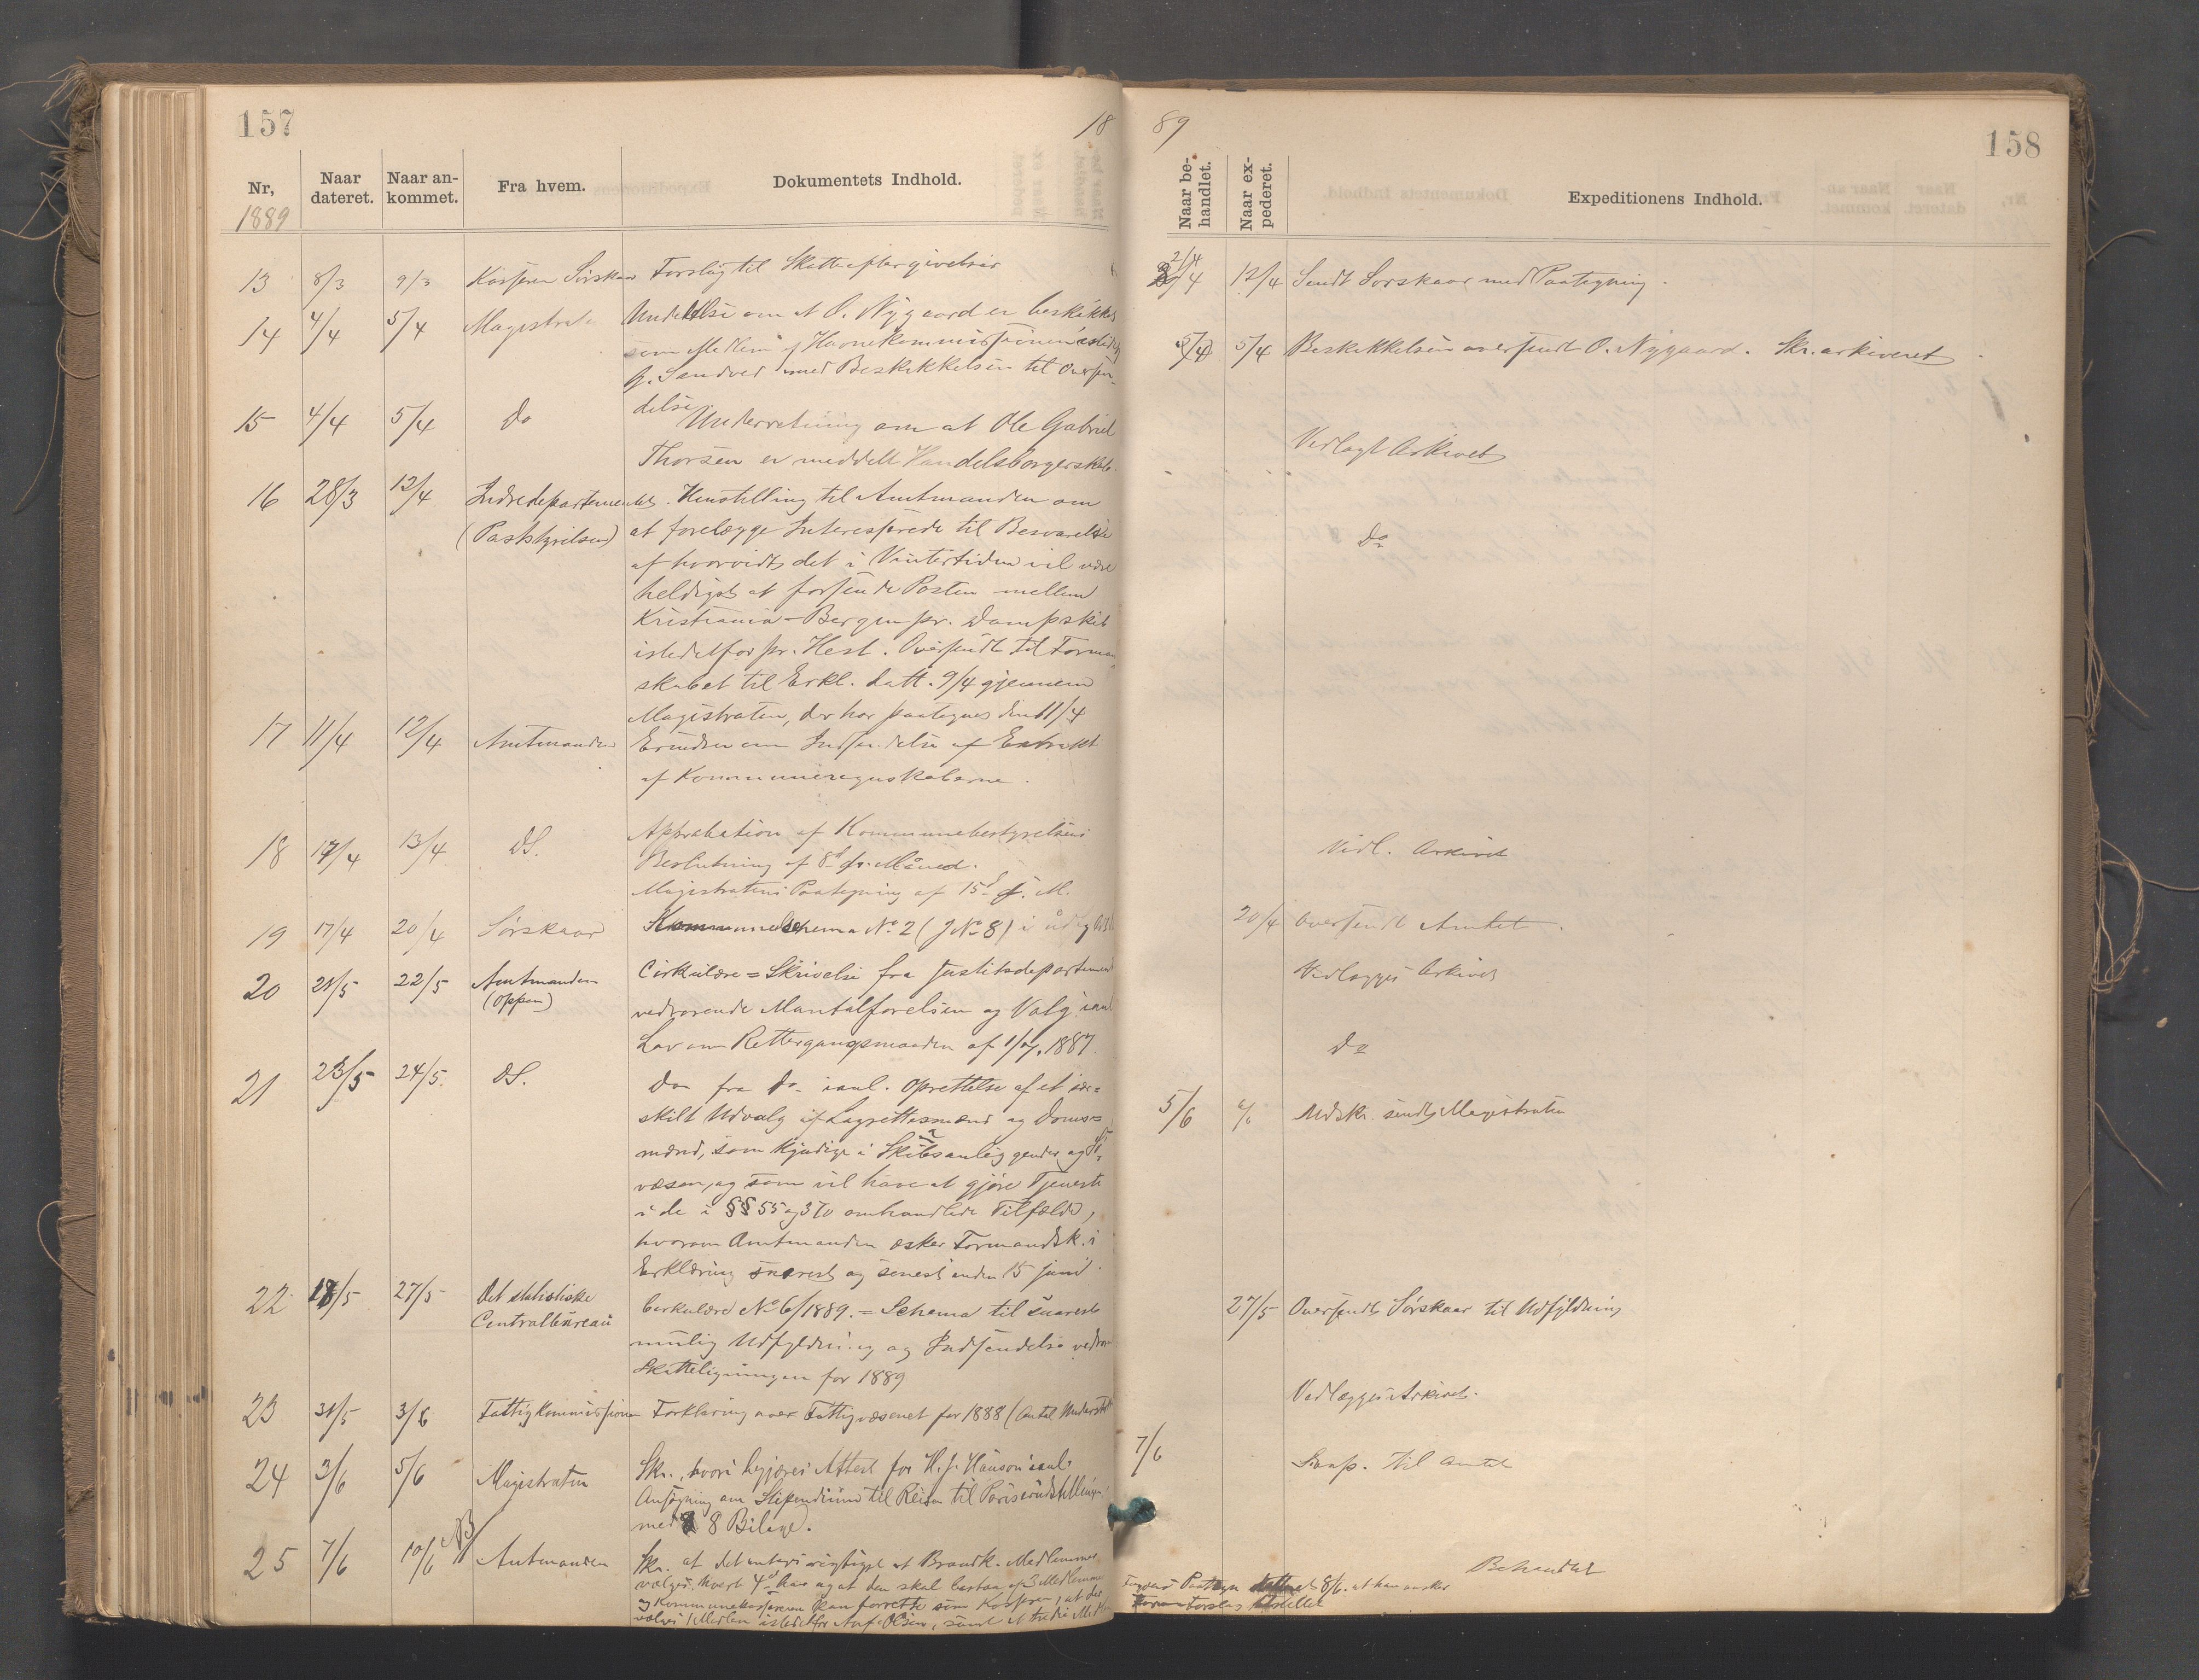 157
18
89
158
Nr,
1889
Naar dateret.
Naar ankommet.
Fra hvem.
Dokumentets Indhold.
Naar behandlet.
Naar expederet.
Expeditionens Indhold.
13 8/3 9/3 Kasserer Sørskaar Forslag til Skatteeftergivelser
2/4 12/4 Sendt Sørskaar med Paategning.
14 4/4 5/4 Magistraten Meddelelse om at O. Nygaard er beskikket
som Medlem af Havnekommissionen istedetf
G. Sandved med Beskikkelsen til Oversen-
delse
5/4 5/4 Beskikkelsen oversendt O. Nygaard. Skr. arkiveret
15 4/4 5/4 Do Underretning om at Ole Gabriel
Thorsen er meddelt Handelsborgerskab.
Vedlagt Arkivet
16 28/3 12/4 Indredepartementet. Henstilling til Amtmanden om
(Poststyrelsen) at forelægge Interesserede til Besvarelse
af hvorvidt det i Vintertiden vil være
heldigst at forsende Posten mellem
Kristiania-Bergen pr. Dampskib
istedetfor pr. Hest. Oversendt til Formand-
skabet til Erkl. datt. 9/4 gjennem
Magistraten, der har paategnet den 11/4
Do
17 11/4 12/4 Amtmanden Erindrer om Indsendelse af Extrakt
af Kommuneregnskaberne.
18 12/4 13/4 DS. Approbation af Kommunebestyrelsens
Beslutning af 8de f. Maaned.
Magistratens Paategning af 15de d. M.
Vedl. Arkivet
19 17/4 20/4 Sørskaar Kommuneschema No. 2 (J No 8) i
20/4 oversendt Amtet.
20 21/5 22/5 Amtmanden Cirkulære = Skrivelse fra Justitsdepartement
(Oppen) vedrørende Mantalførelsen og Valg ianl
Lov om Rettergangsmaaden af 1/7. 1887.
Vedlægges Arkivet
21 23/5 24/5. DS. Do fra Do ianl. Oprettelse af et sær=
skilt Udvalg af Lagrettesmænd og Doms=
mænd, som kyndige i Skibsanliggender og
væsen, og som vil have at gjøre Tjeneste
i de i §§ 55 og 370 omhandlede Tilfælde,
hvorom Amtmanden æsker Formandsk.s
Erklæring snarest og senest inden 15 Juni
Do
5/6 6/6 Udskr. sendt Magistraten
22 18/5 27/5 Det statistiske Cirkulære No 6/1889. = Schema til snarest
Centralbureau mulig Udfyldning og Indsendelse vedrør
Skatteligningen for 1889
27/5 Oversendt Sørskaar til Udfyldning
23 31/5 3/6 Fattigkommissionen Forklaring over Fattigvæsenet for 1888 (Antal Underst
Vedlægges Arkivet.
24 3/6 5/6 Magistraten Skr., hvori begjæres Attest for H. J. Hanson ianl
Ansøgning om Stipendium til Reisen til Pariserudstillingen
med 8 Bilage.
7/6 til Amtet
25 7/6 10/6 NB Amtmanden Skr. at det antages rigtigst at Brandk. Medlemmer
vælges hvert 4de Aar og at den skal bestaa af 3 Medlemmer
og Kommunekassereren kan forrette som Kasserer, at der
vælges 1 Medlem istedetfor Olsen, samt at tredie Medl
Behandlet
8/6. at han ønsker